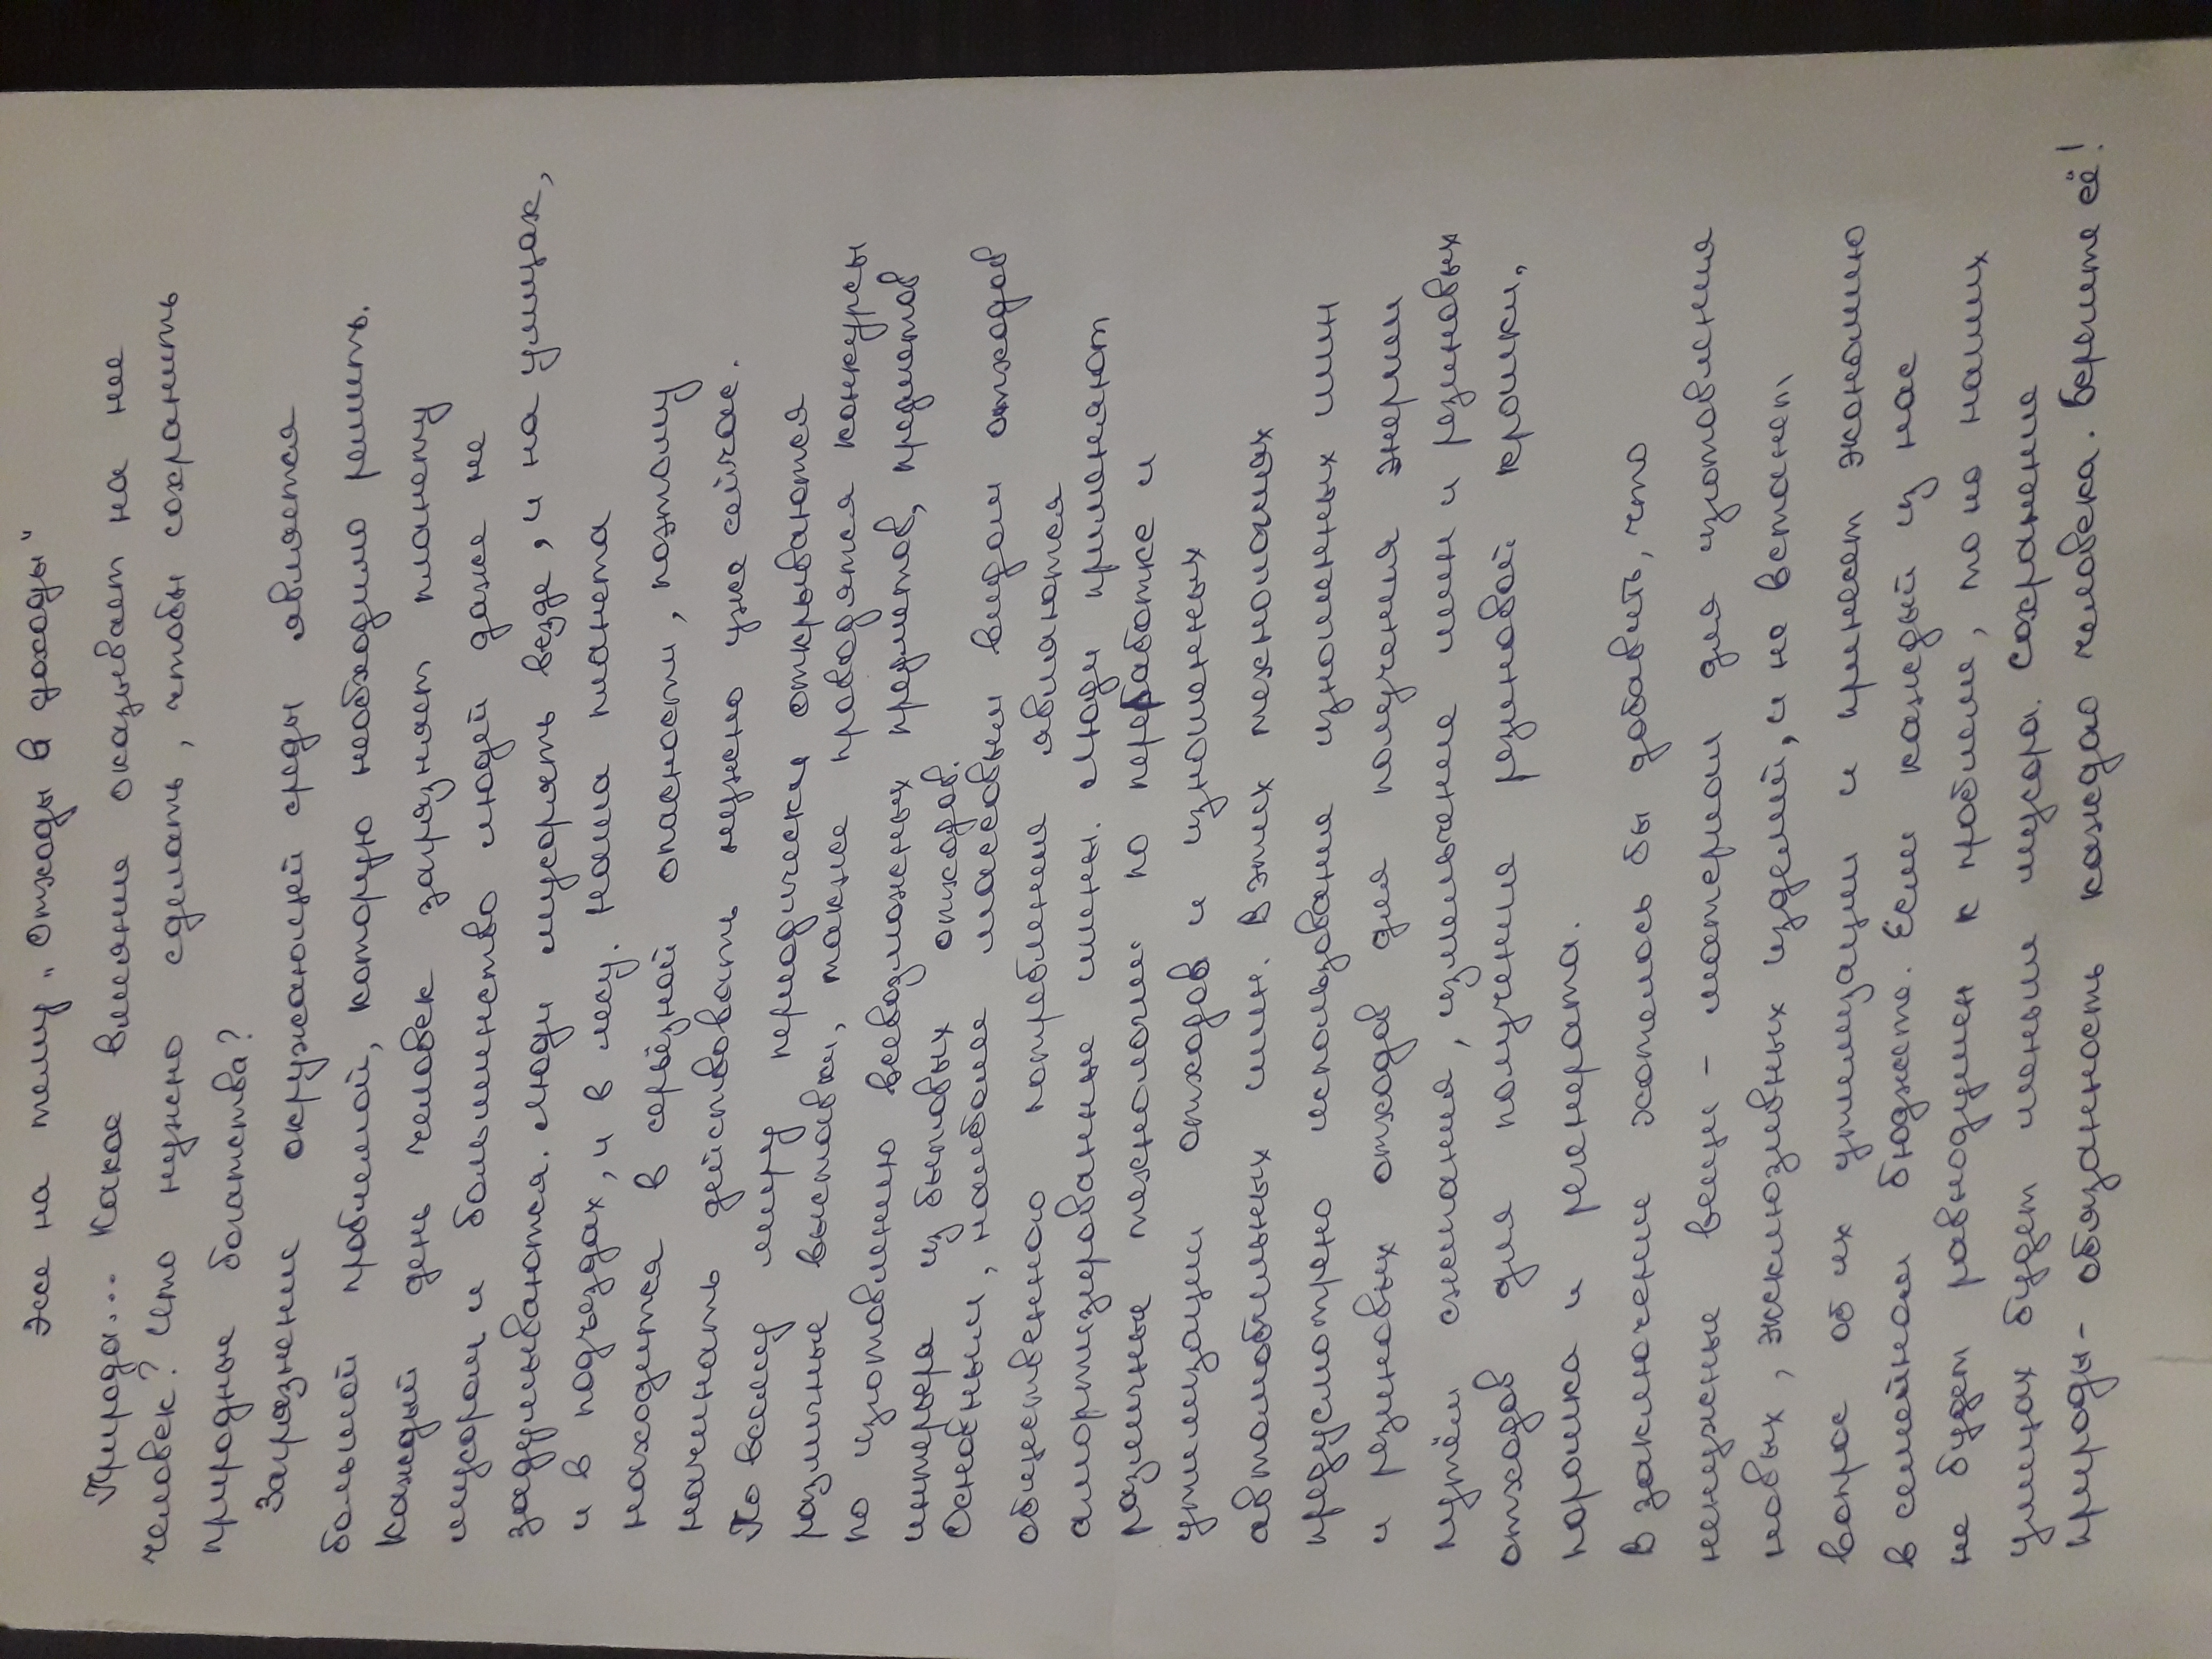 Эссе на тему „Отходы в доходы"
Природа... Какое влияние оказывает на нее
человек? Что нужно сделать, чтобы сохранить
природные богатства?
Загрязнение окружающей среды является
большой проблемой, которую необходимо решить.
Каждый день человек загрязняет планету
мусором и большинство людей даже не
задумываются. Люди мусорять везде, и на улицах,
и в подъездах, и в лесу. Наша планета
находится в серьёзной опасности, поэтому
начинать действовать нужно уже сейчас.
По всему миру периодически открываются
различные выставки, также проводятся конкурсы
по изготовлению всевозможных предметов, предметов
интерьера из бытовых отходов.
Основным, наиболее массовым видом отходов
общественного потребления являются
амортизированные шины. Люди применяют
различные технологии по переработке и
утилизации отходов и изношенных
автомобильных шин. В этих технологиях
предусмотрено использование изношенных шин
и резиновых отходов для получения энергии
путём сжигания, измельчение шин и резиновых
отходов для получения резиновой крошки,
порошка и регенерата.
В заключение хотелось бы добавить, что
ненужные вещи - материал для изготовления
новых, эксклюзивных изделий, и не встанет
вопрос об их утилизации и принесет экономию
в семейном бюджете. Если каждый из нас
не будет равнодушен к проблеме, то на наших
улицах будет меньше мусора. Сохранение
природы - обязанность каждого человека. Берегите её!